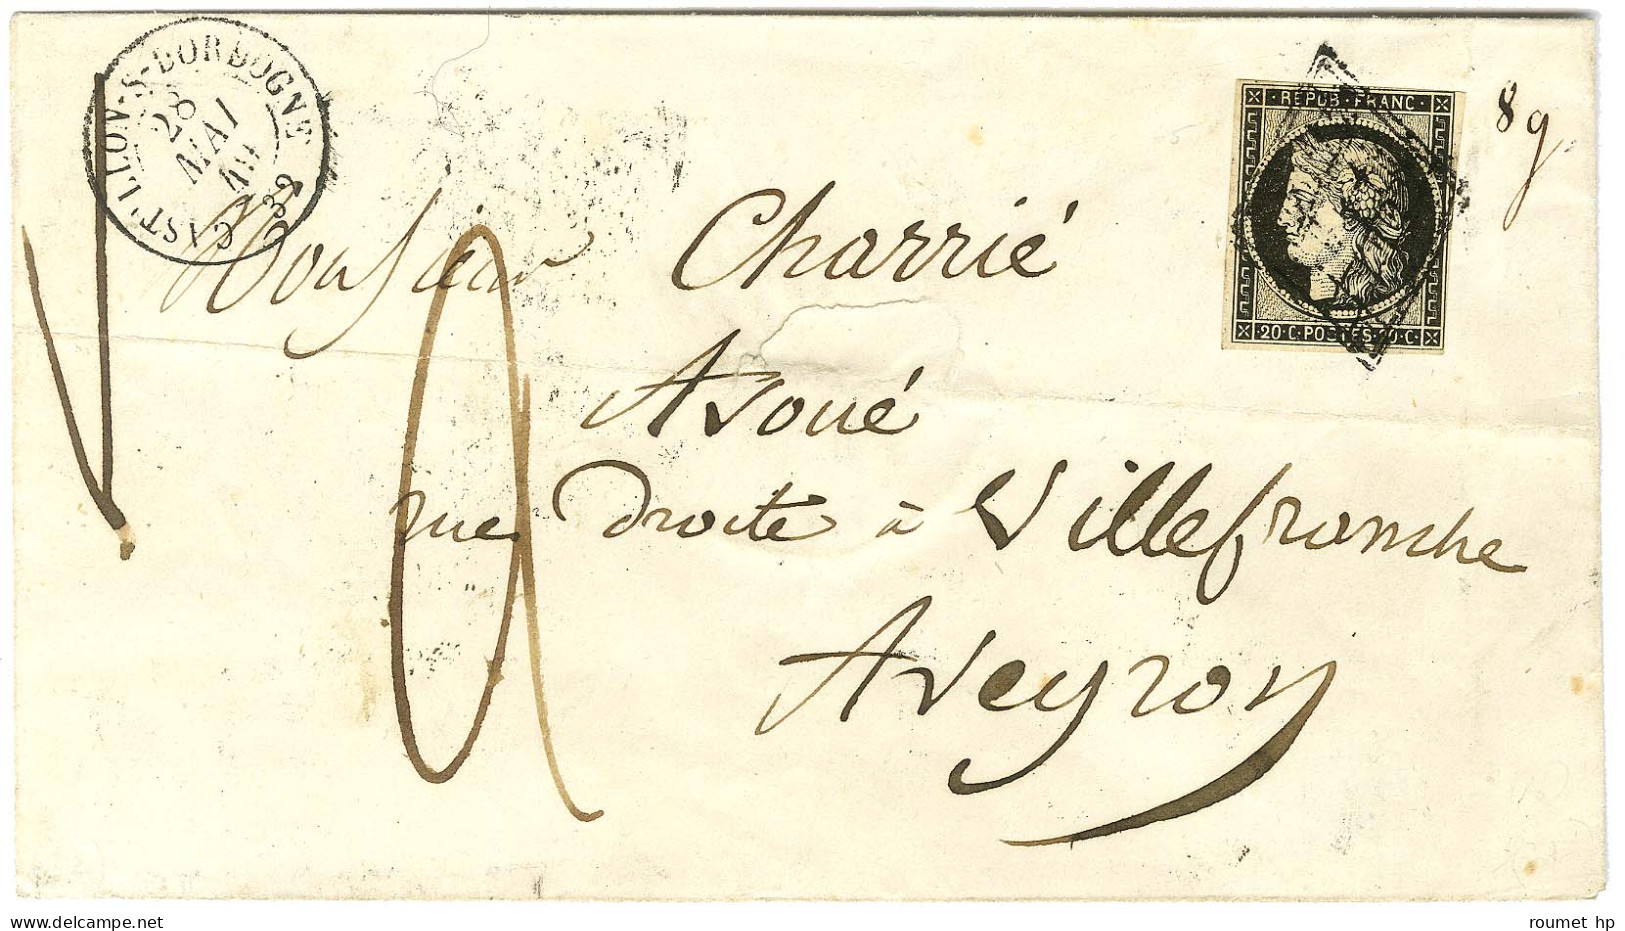 CASTILLON-S-DORDOGNE
28
MAI
49
(32)
REPUB · FRANC ·
20 · C · POSTES · 20 · C ·
8 g
Monsieur Charrié
Avoué
rue Droite à Villefranche
Aveyron
roumet hp